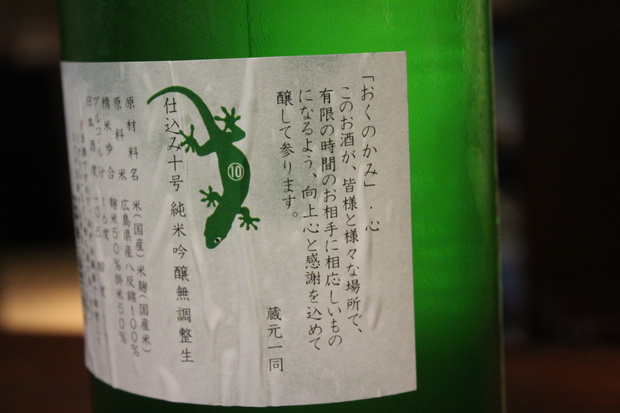 「おくのかみ」・心
このお酒が、皆様と様々な場所で、
有限の時間のお相手に相応しいもの
になるよう、向上心と感謝を込めて
醸して参ります。
蔵元一同
⑩
仕込み十号 純米吟醸無調整生
原材料名 米(国産)米麹(国産米)
原料米 広島県産八反錦100%
精米歩合 麹米50%掛米50%
アルコール分 16度
日本酒度